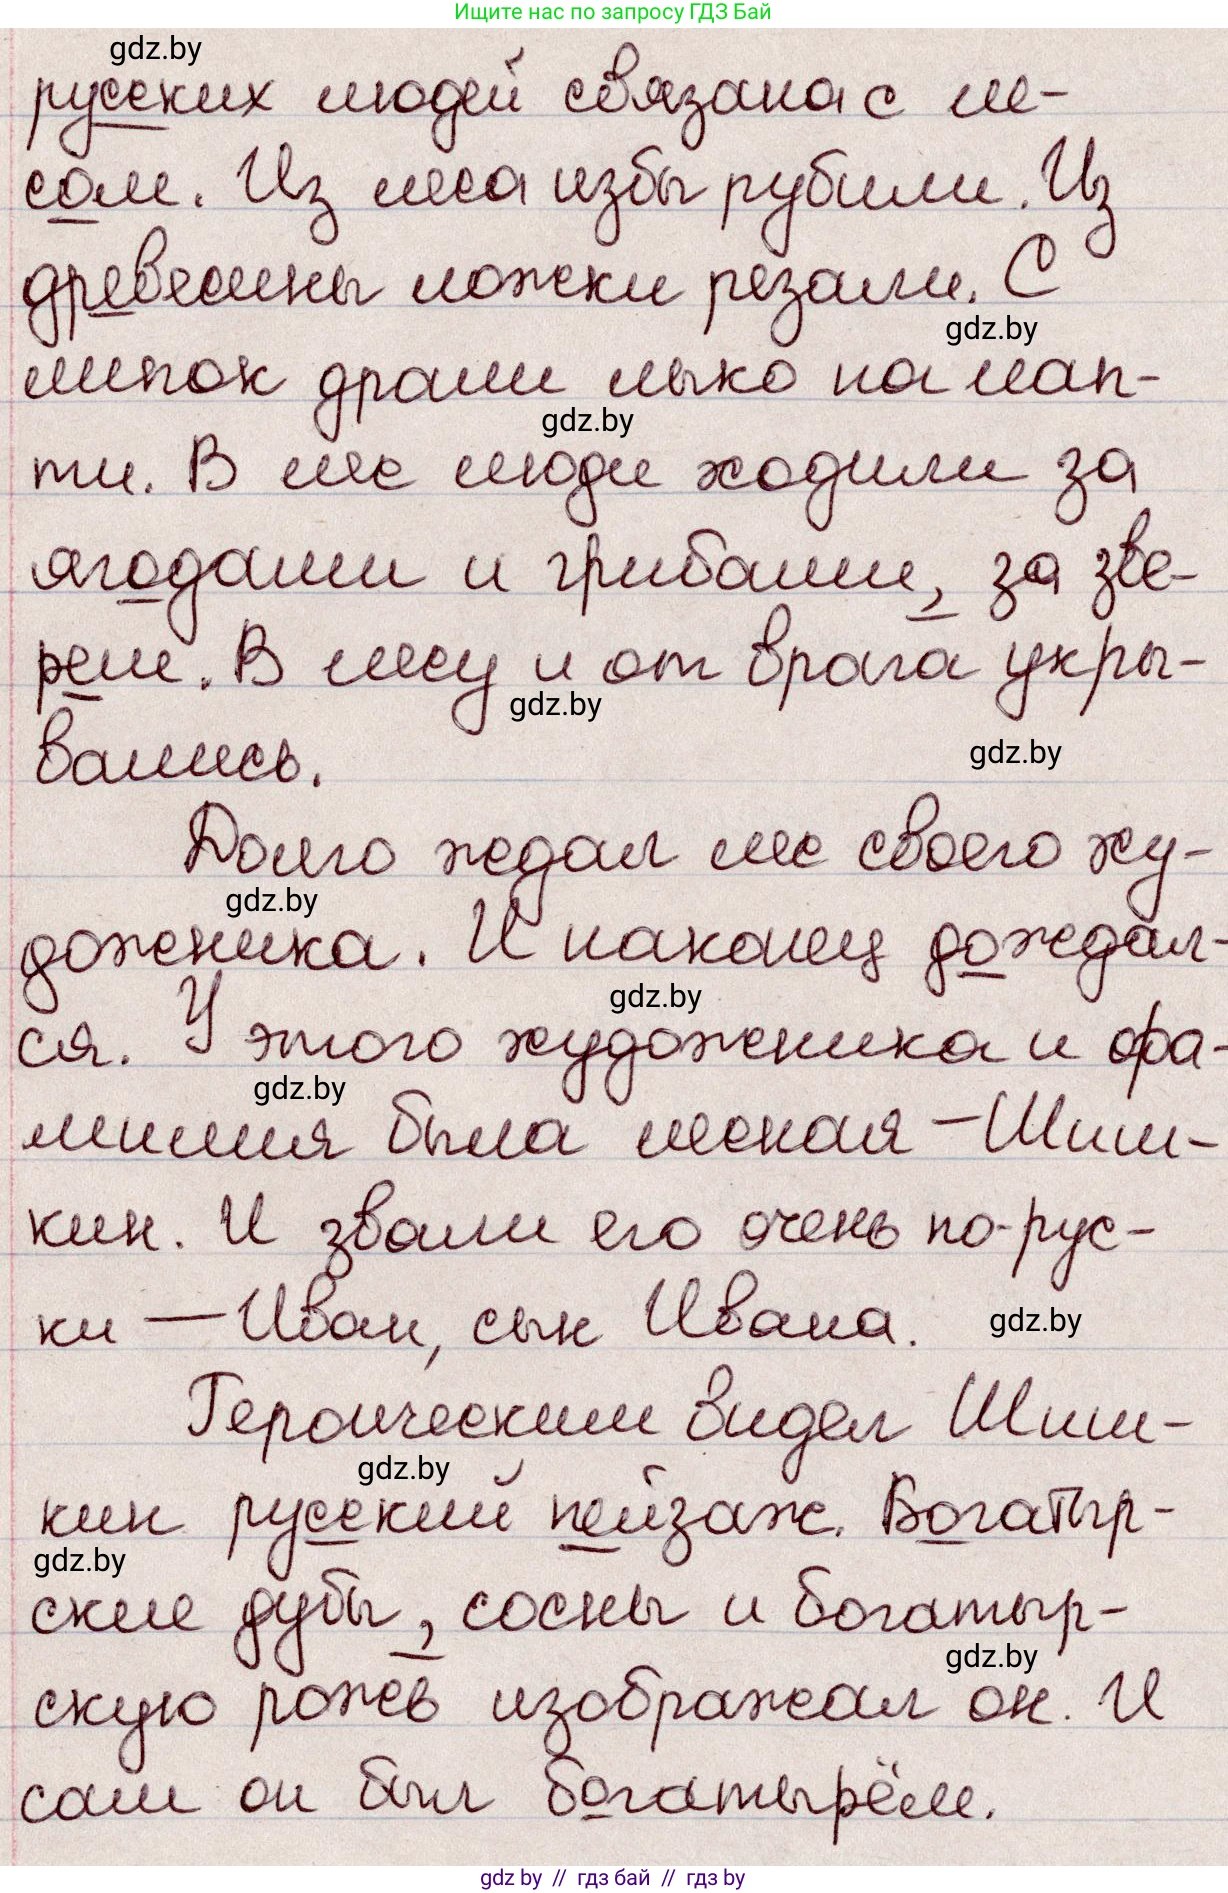 Ищите нас по запросу ГДЗ Бай
gdz.by
русских людей связана с ле-
сом. Из леса избы рубили. Из
древесины ложки резали. С
gdz.by
липок драли лыко на лап-
gdz.by
ти. В лес люди ходили за
ягодами и грибами, за зве-
рем. В лесу и от врага укры-
gdz.by
вались.
gdz.by
Долго ждал лес своего ху-
gdz.by
дожника. И наконец дождал-
gdz.by
ся. У этого художника и фа-
gdz.by
милия была лесная – Шиш-
кин. И звали его очень по-рус-
ки – Иван, сын Ивана.
gdz.by
Героическим видел Шиш-
gdz.by
кин русский пейзаж. Богатыр-
gdz.by
ские дубы, сосны и богатыр-
gdz.by
скую рожь изображал он. И
сам он был богатырём.
gdz by // гдз бай // gdz by